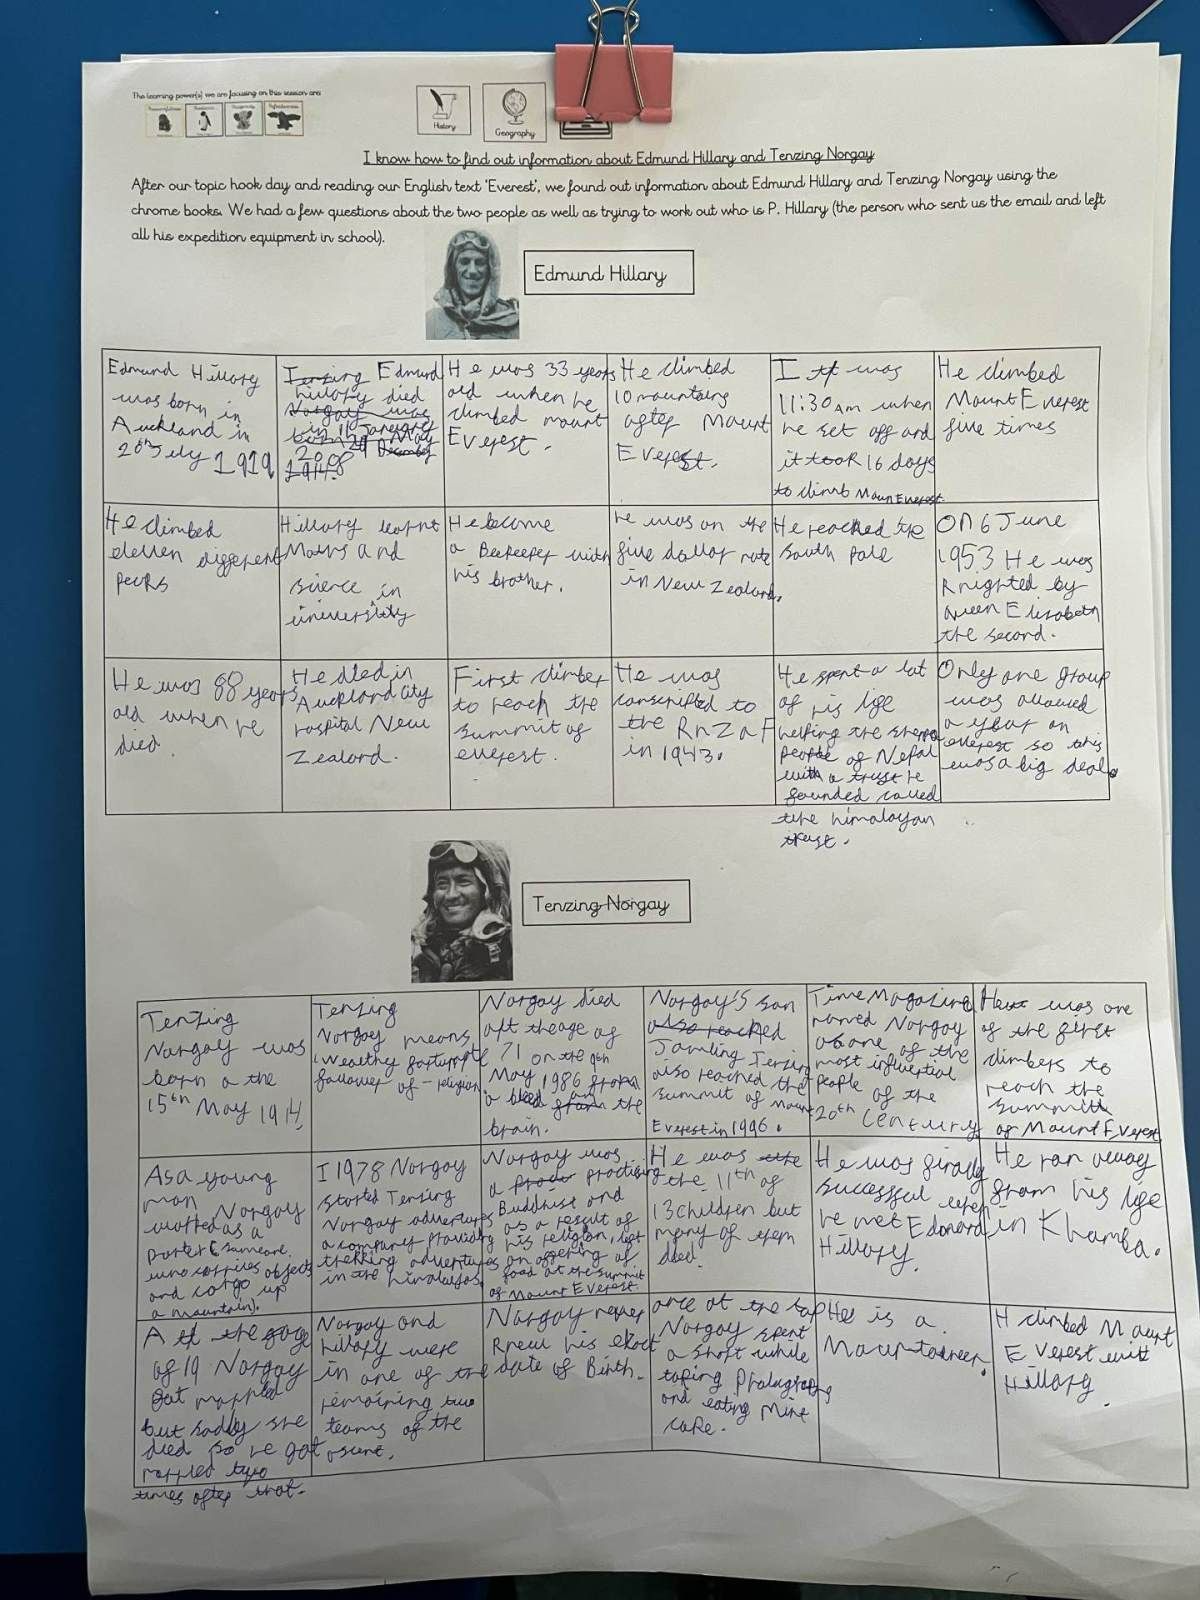 The learning power(s) we are focusing on this session are:
History
Geography
I know how to find out information about Edmund Hillary and Tenzing Norgay
After our topic hook day and reading our English text 'Everest', we found out information about Edmund Hillary and Tenzing Norgay using the
chrome books. We had a few questions about the two people as well as trying to work out who is P. Hillary (the person who sent us the email and left
all his expedition equipment in school).
Edmund Hillary
Edmund Hillary
was born in
Auckland in
20th July 1919
Tenzing Edmund
hillary died
Norgay was
in 11 January
born 29 May
December
2008
1948
He was 33 years
old when he
climbed mount
Everest.
He climbed
10 mountains
after Mount
Everest.
I tt was
11:30 AM when
he set off and
it took 16 days
to climb Moun Everest.
He climbed
Mount Everest
five times
He climbed
eleven different
peaks
Hillary learnt
Maths and
science in
university
He become
a Beekeeper with
his brother.
he was on the
five dollar note
in New Zealand.
He reached the
South Pole
On 6 June
1953 He was
knighted by
Queen Elizabeth
the second.
He was 88 years
old when he
died.
He died in
Auckland City
hospital New
Zealand.
First climber
to reach the
summit of
everest.
He was
conscripted to
the RnZaF
in 1943.
He spent a lot
of his life
helping the sherpa
people of Nepal
with a trust he
founded called
the himalayan
trust.
Only one group
was allowed
a year on
everest so this
was a big deal.
Tenzing Norgay
Tenzing
Norgay was
born a the
15th May 1914.
Tenzing
Norgay means
Wealthy fortunate
follower of - religion
Norgay died
aft the age of
71 on the 9th
May 1986 from
a bleed on the
brain.
Norgay's son
also reached
Jamling Tenzing
also reached the
summit of Mount
Everest in 1996.
Time Magazine
named Norgay
as one of the
most influential
people of the
20th Century
He was one
of the first
climbers to
reach the
summit
of Mount Everest
As a young
man Norgay
worked as a
porter (someone
who carries objects
and cargo up
a mountain).
I 1978 Norgay
started Tenzing
Norgay adventures
a company providing
trekking adventures
in the himalayas.
Norgay was
a practising
Buddhist and
as a result of
his religion, left
an offering of
food at the summit
of Mount Everest.
He was the
the 11th of
13 children but
many of them
died.
He was
successful when
he met Edmund
Hillary.
He ran away
from his life
in Khamba.
A tt the age
of 19 Norgay
Got married
but sadly she
died so he got
married two
times after that.
Norgay and
hillary were
in one of the
remaining two
teams of the
ascent.
Norgay never
knew his exact
date of Birth.
once at the top
Norgay spent
a short while
taking Photographs
and eating Mint
cake.
He is a
Mountaineer.
H climbed Mount
Everest with
Hillary.